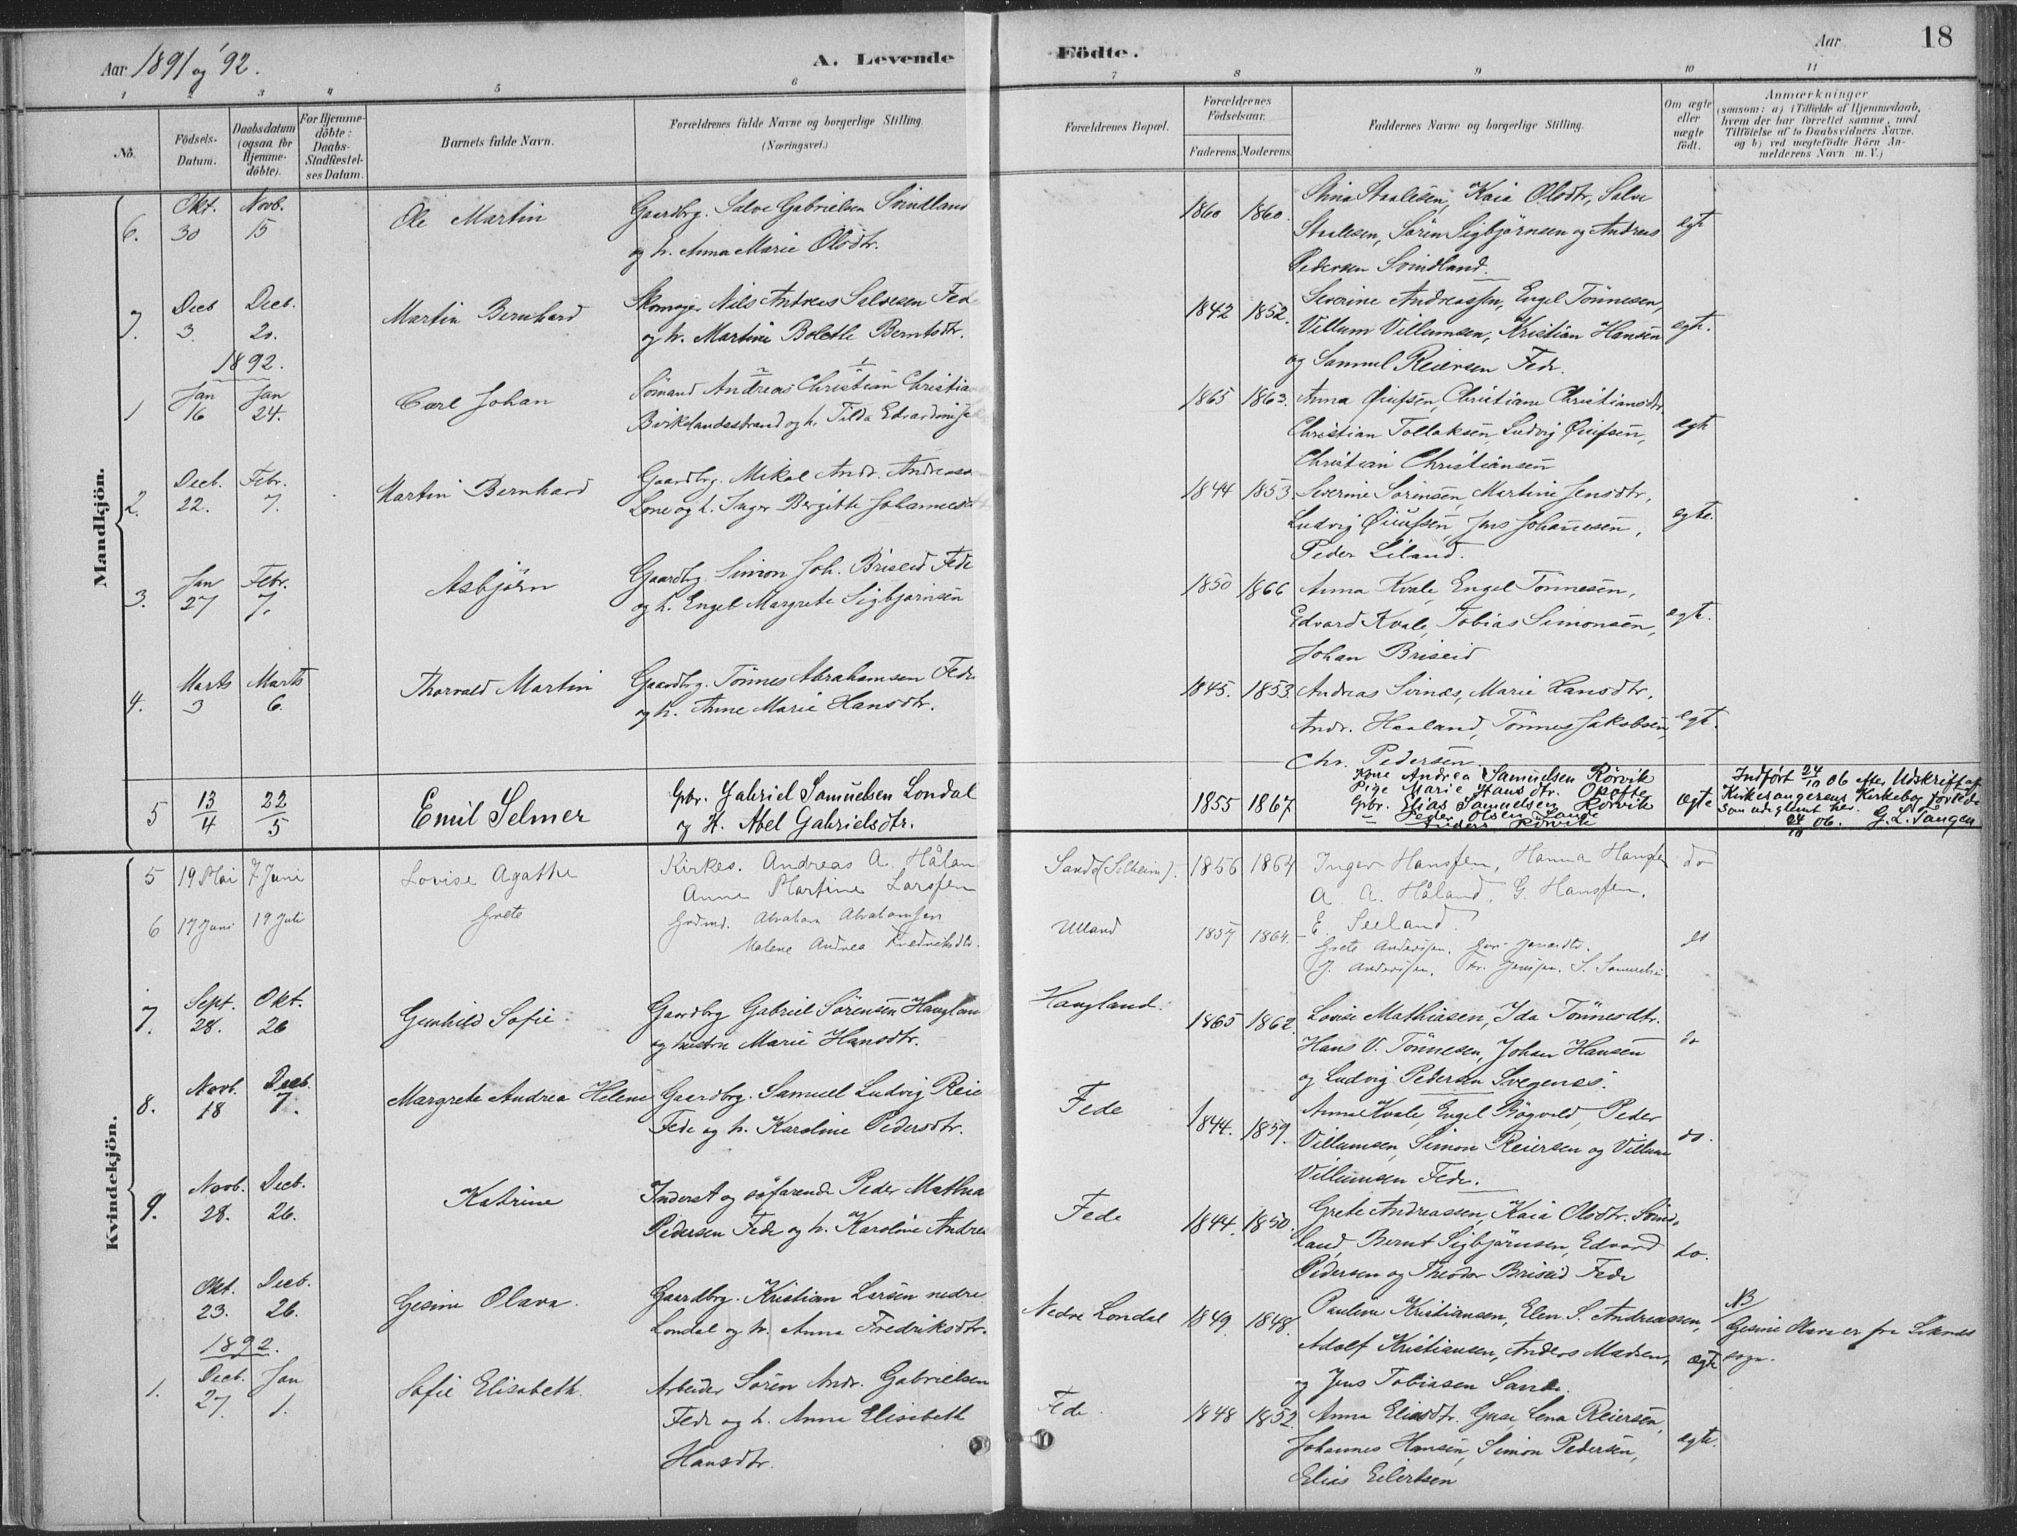 Aar 1891 og '92.
A. Levende Födte.
Aar
18
1 2 3 4 5 6 7 8 9 10 11
No.
Födsels-Datum.
Daabsdatum (ogsaa for Hjemme-döbte).
For Hjemme-döbte: Daabs-Stadfæstel-ses Datum.
Barnets fulde Navn.
Forældrenes fulde Navne og borgerlige Stilling. (Næringsvei.)
Forældrenes Bopæl.
Forældrenes Födselsaar.
Faderens. Moderens.
Faddernes Navne og borgerlige Stilling.
Om ægte eller uægte födt.
Anmærkninger
(saasom: a) i Tilfælde af Hjemmedaab, hvem der har forrettet samme, med Tilföielse af to Daabsvidners Navne. og b) ved uægtefödte Börn An-melderens Navn m. V.)
Mandkjön.
6. Okt. 30 Novb. 15 Ole Martin
Gaardbrg. Salve Gabrielsen Svindland
og h. Anna Marie Olsdtr.
1860 1860.
Stina Staalesen, Kaia Olsdtr, Salve
Staalesen, Sören Sigbjörnsen og Andreas
Pedersen Svindland.
egte
7. Decb 3. Decb. 20. Martin Bernhard
Skomager Nils Andreas Salvesen Fede
og h. Martine Bolette Berntsdtr.
1842 1852.
Severine Andreassen, Engel Tönnesen,
Villum Villumsen, Kristian Hansen
og Samuel Reiersen Fede.
egte.
1892.
1 Jan 16 Jan 24. Carl Johan
Sömand Andreas Christian Christia
Birkelandsstrand og h. Tilda Edvardine
1865 1863.
Anna Öiufsen, Christiane Christiansdtr
Christian Tollaksen, Ludvig Öiufsen,
Christian Christiansen
egte
2. Decb. 22. Febr. 7. Martin Bernhard
Gaardbrg. Mikal Andr. Andreas
Lone og h. Inger Bergitte Johannesdtr
1844 1853.
Severine Sörensen, Martine Jensdtr,
Ludvig Öiufsen, Jens Johannesen,
Peder Liland.
egte.
3. Jan 27 Febr. 7. Asbjörn
Gaardbrg. Simon Joh. Briseid Fede
og h. Engel Margrete Sigbjörnsen
1850 1866
Anna Kvale, Engel Tönnesen,
Edvard Kvale, Tobias Simonsen,
Johan Briseid
egte.
4. Marts 3 Marts 6. Thorvald Martin
Gaardbrg. Tönnes Abrahamsen Fede
og h. Anne Marie Hansdtr.
1845. 1853.
Andreas Svinæs, Marie Hansdtr,
Andr. Haaland, Tönnes Jakobsen,
Chr. Pedersen
egte.
5 13/4 22/5 Emil Selmer
Gbr. Gabriel Samuelsen Londal
og H. Abel Gabrielsdtr.
1855 1867.
Kone Andrea Samuelsen Rörvik
Pige Marie Hansdtr. Opofte
Gbr. Elias Samuelsen Rörvik
" Peder Olsen Lande
Rörvik
Ægte
Indført 24/10 06 efter Udskrift af
Kirkesangerens Kirkebog for Fede
som udeglemt her.
24/10 06. G. L. Tangen
Kvindekjön.
5 19 Mai 7 Juni Lovise Agathe
Kirkes. Andreas A. Håland
Anne Martine Larssen
Sande (Solheim). 1856 1864
Inger Hanssen, Hanna Hanssen
A. A. Håland, G. Hanssen.
E. Seeland.
do
6 17 Juni 19 Juli Grete
Grdmd. Abraham Abrahamsen
Malene Andrea Fredriksdtr.
Ulland 1857 1864.
Grete Anderssen,
J. Anderssen, S. Samuelsen
do
7. Sept. 28. Okt. 26 Gunhild Sofie.
Gaardbrg Gabriel Sörensen Haugland
og hustru Marie Hansdtr.
Haugland. 1865 1862.
Lovise Mathiasen, Ida Tönnesdtr.
Hans V. Tönnesen, Johan Hansen
og Ludvig Pedersen Svegenes.
do
8. Novb. 18 Decb. 7. Margrete Andrea Helene
Gaardbrg. Samuel Ludvig Reie
Fede og h. Karoline Pedersdtr.
Fede 1844. 1859.
Anna Kvale, Engel Rögvald, Peder
Villumsen, Simon Reiersen og Villum
Villumsen Fede.
do.
9. Novb. 28. Decb. 26. Katrine
Inderst og söfarende Peder Mathia
Pedersen Fede og h. Karoline Andrea
Fede 1844. 1850.
Grete Andreassen, Kaia Olsdtr. Svind-
land, Bernt Sigbjörnsen, Edvard
Pedersen og Theodor Briseid Fede
do.
Okt. 23. Decb. 26. Gesine Olava.
Gaardbrg. Kristian Larsen nedre
Londal og h. Anna Fredriksdtr.
Nedre Londal 1849. 1848.
Pauline Kristiansen, Elen S. Andreassen,
Adolf Kristiansen, Anders Madsen,
og Jens Tobiasen Sande.
ægte
NB
Gesine Olava er fra Liknes
sogn.
1892.
1. Decb. 27. Jan 1. Sofie Elisabeth.
Arbeider Sören Andr. Gabrielsen
Fede og h. Anna Elisabeth
Hansdtr.
Fede. 1848 1852
Anna Eliasdtr. Lena Reiersen,
Johannes Hansen, Simon Pedersen,
Elias Eilertsen
egte.